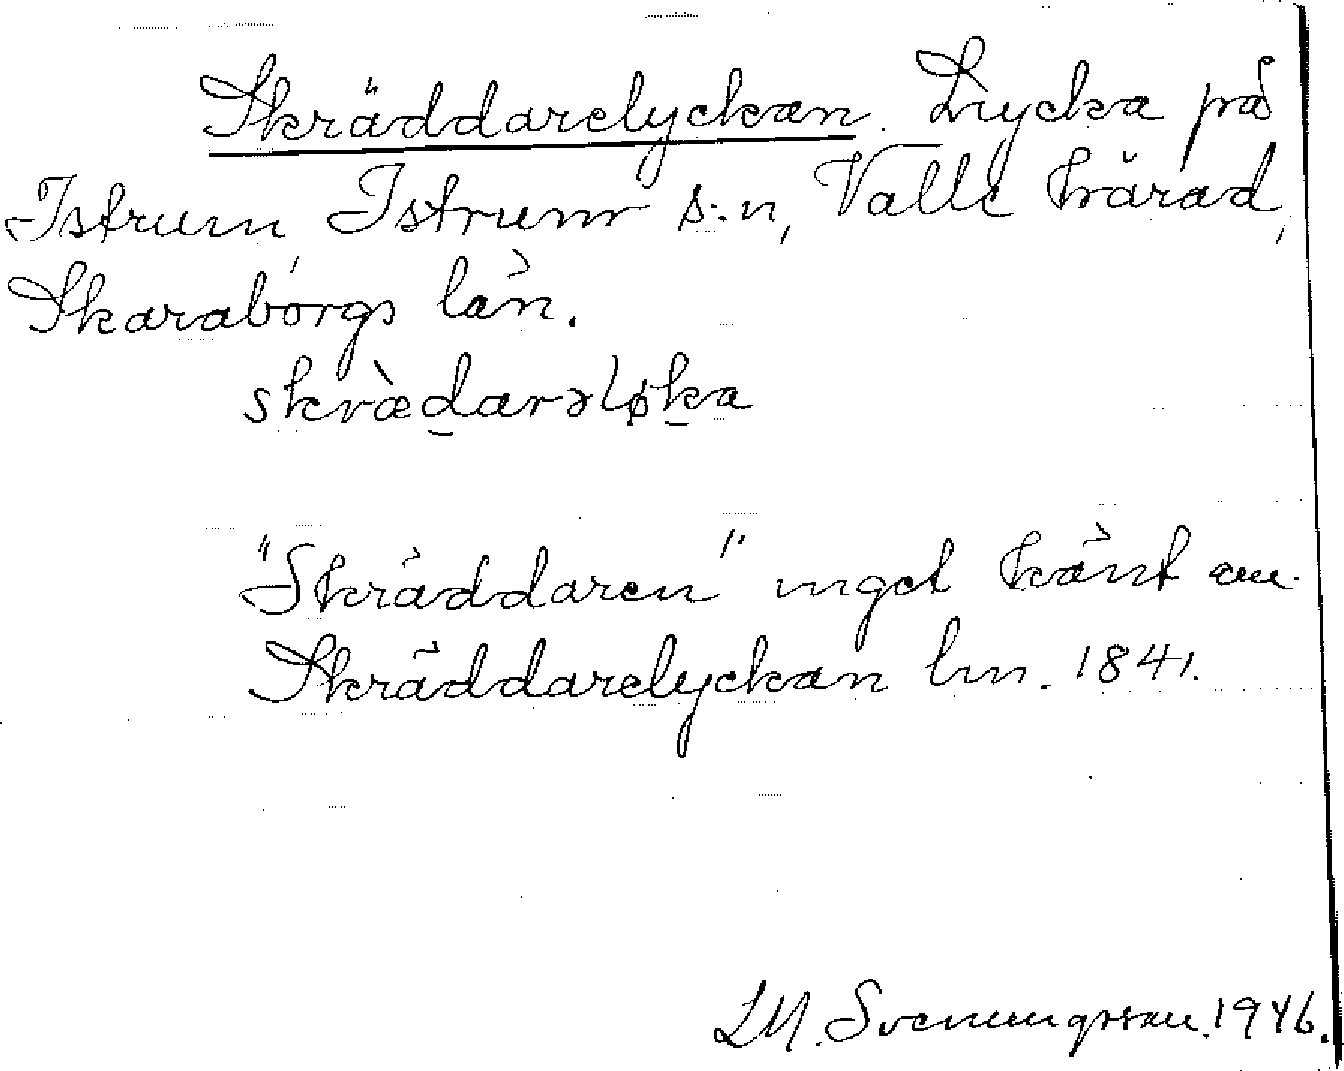 Skräddarelyckan. Lycka på
Istrum, Istrum s:n, Valle härad,
Skaraborgs län.
skræ̀darəløka
"Skräddaren" inget känt om.
Skräddarelyckan lm. 1841.
LM. Svenungsson. 1946.